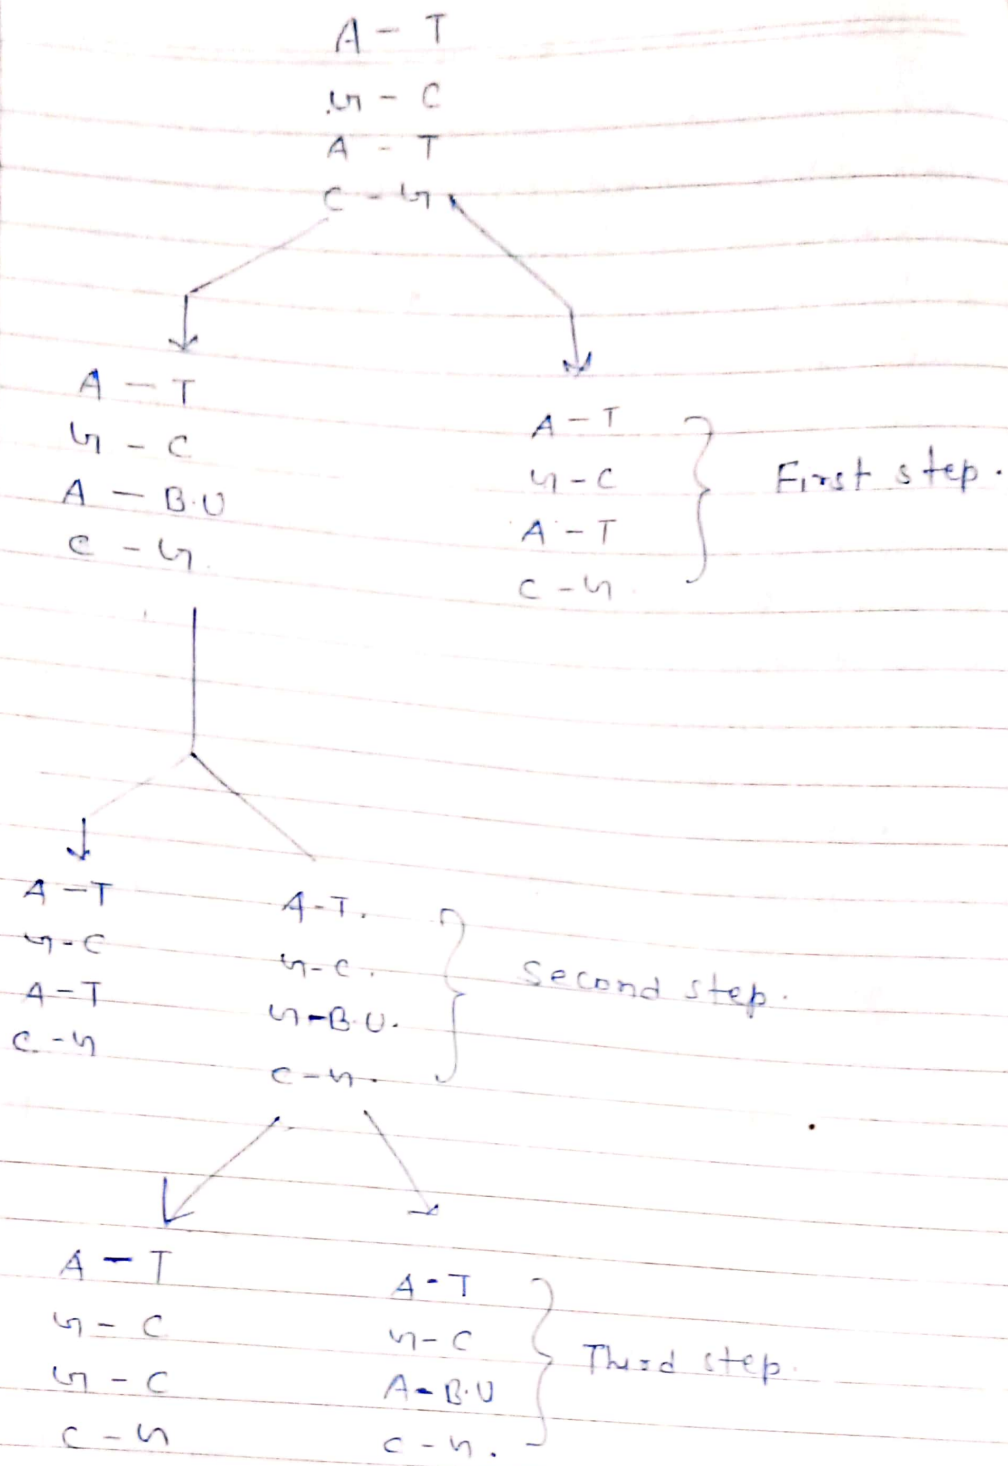 A - T
G - C
A - T
C - G
A - T
G - C
A - B.U
C - G
A - T
G - C
A - T
C - G
First step.
A - T
G - C
A - T
C - G
A - T.
G - C.
G - B.U.
C - G.
Second step.
A - T
G - C
G - C
C - G
A - T
G - C
A - B.U
C - G.
Third step.